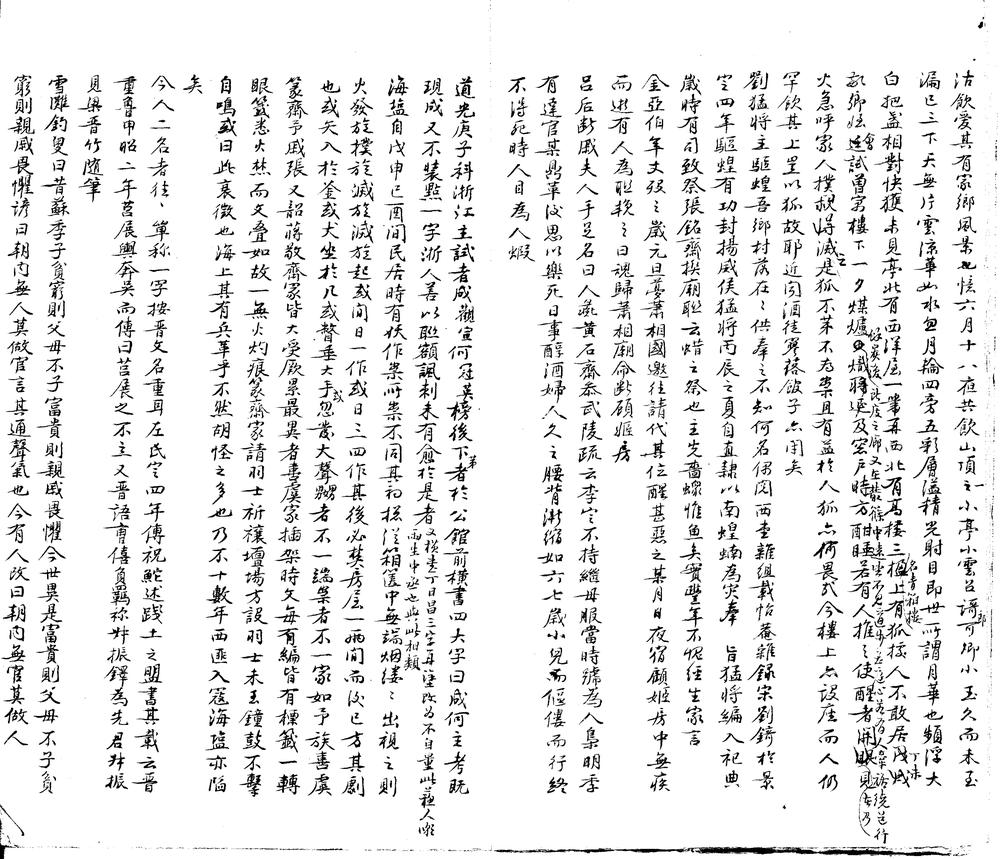 沽飲愛其有家鄉風景也憶六月十八夜共飲山頂之一小亭小雲呂語可卿小玉久而未玉
漏已三下天無片雲涼華如水忽月輪四旁五彩層溢精光射目即世所謂月華也頻浮大
白把盃相對快獲未見亭北有西洋屋一篥再西北有高樓三楹上有狐擾人不敢居戊戌
敬鄉姪會試曾寓樓下一夕煤爐火熾將延及窓戶時方酣睡若有人推之使醒者開眼見
火急呼家人撲救得滅是狐不第不為祟且有益於人狐亦何畏哉今樓上亦設座而人仍
罕飲其上豈以狐故耶近閱酒徒寥落飯子亦閉矣
劉猛將主驅蝗吾鄉村落在在供奉之不知何名偶閱西臺雜組載怡菴雜錄宋劉錡於景
定四年驅蝗有功封揚威侯猛將丙辰之夏自直隸以南蝗蝻為灾奉 旨猛將編入祀典
歲時有司致祭張銘齋撰廟聯云蜡之祭也主先嗇螺惟魚矣實豐年不愧經生家言
金亞伯年丈弢之歲元旦夢蕭相國邀往請代其位醒甚惡之某月日夜宿顧姬房中無疾
而逝有人為聯輓之曰魂歸蕭相廟命斷顧姬房
呂后斷戚夫人手足名曰人彘黃石齋忝武陵疏云李定不持繼母服當時號為人梟明季
有達官某鼎革後思以樂死日事醇酒婦人久之腰背漸縮如六七歲小兒而傴僂而行終
不得死時人目為人蝦
道光庚子科浙江主試者咸觀宣何冠英榜後下第者於公館前橫書四大字曰咸何主考既
現成又不裝點一字浙人善以聯額諷刺未有愈於是者
海塩自戊申己酉間民居時有妖作祟所祟不同其初搖從箱篋中無端烟縷縷出視之則
火發旋撲旋滅旋滅旋起或間日一作或日三四作其後必焚房屋一兩間而後已方其劇
也或矢入於釜或犬坐於几或瞽垂大手或忽發大聲嬲者不一端祟者不一家如予族善虞
篆齋予戚張又韶蔣敬齋家皆大受厥累最異者善虞家插架時文每有編皆有標籤一轉
眼籤悉火然而文疊如故一無火灼痕篆齋家請羽士祈禳壇場方設羽士未至鐘鼓不擊
自鳴或曰此衰徵也海上其有兵革乎不然胡怪之多也乃不十數年西匪入寇海塩亦陷
矣
今人二名者往往單稱一字按晋文名重耳左氏定四年傳祝鮀述踐土之盟書其載云晋
重魯申昭二年莒展輿奔吳而傳曰莒展之不立又晋語曹僖負羈称叔振鐸為先君叔振
見梁晋竹隨筆
雪灘釣叟曰昔蘇季子貧窮則父母不子富貴則親戚畏懼今世異是富貴則父母不子貧
窮則親戚畏懼諺曰朝內無人莫做官言其通聲氣也今有人改曰朝內無官莫做人